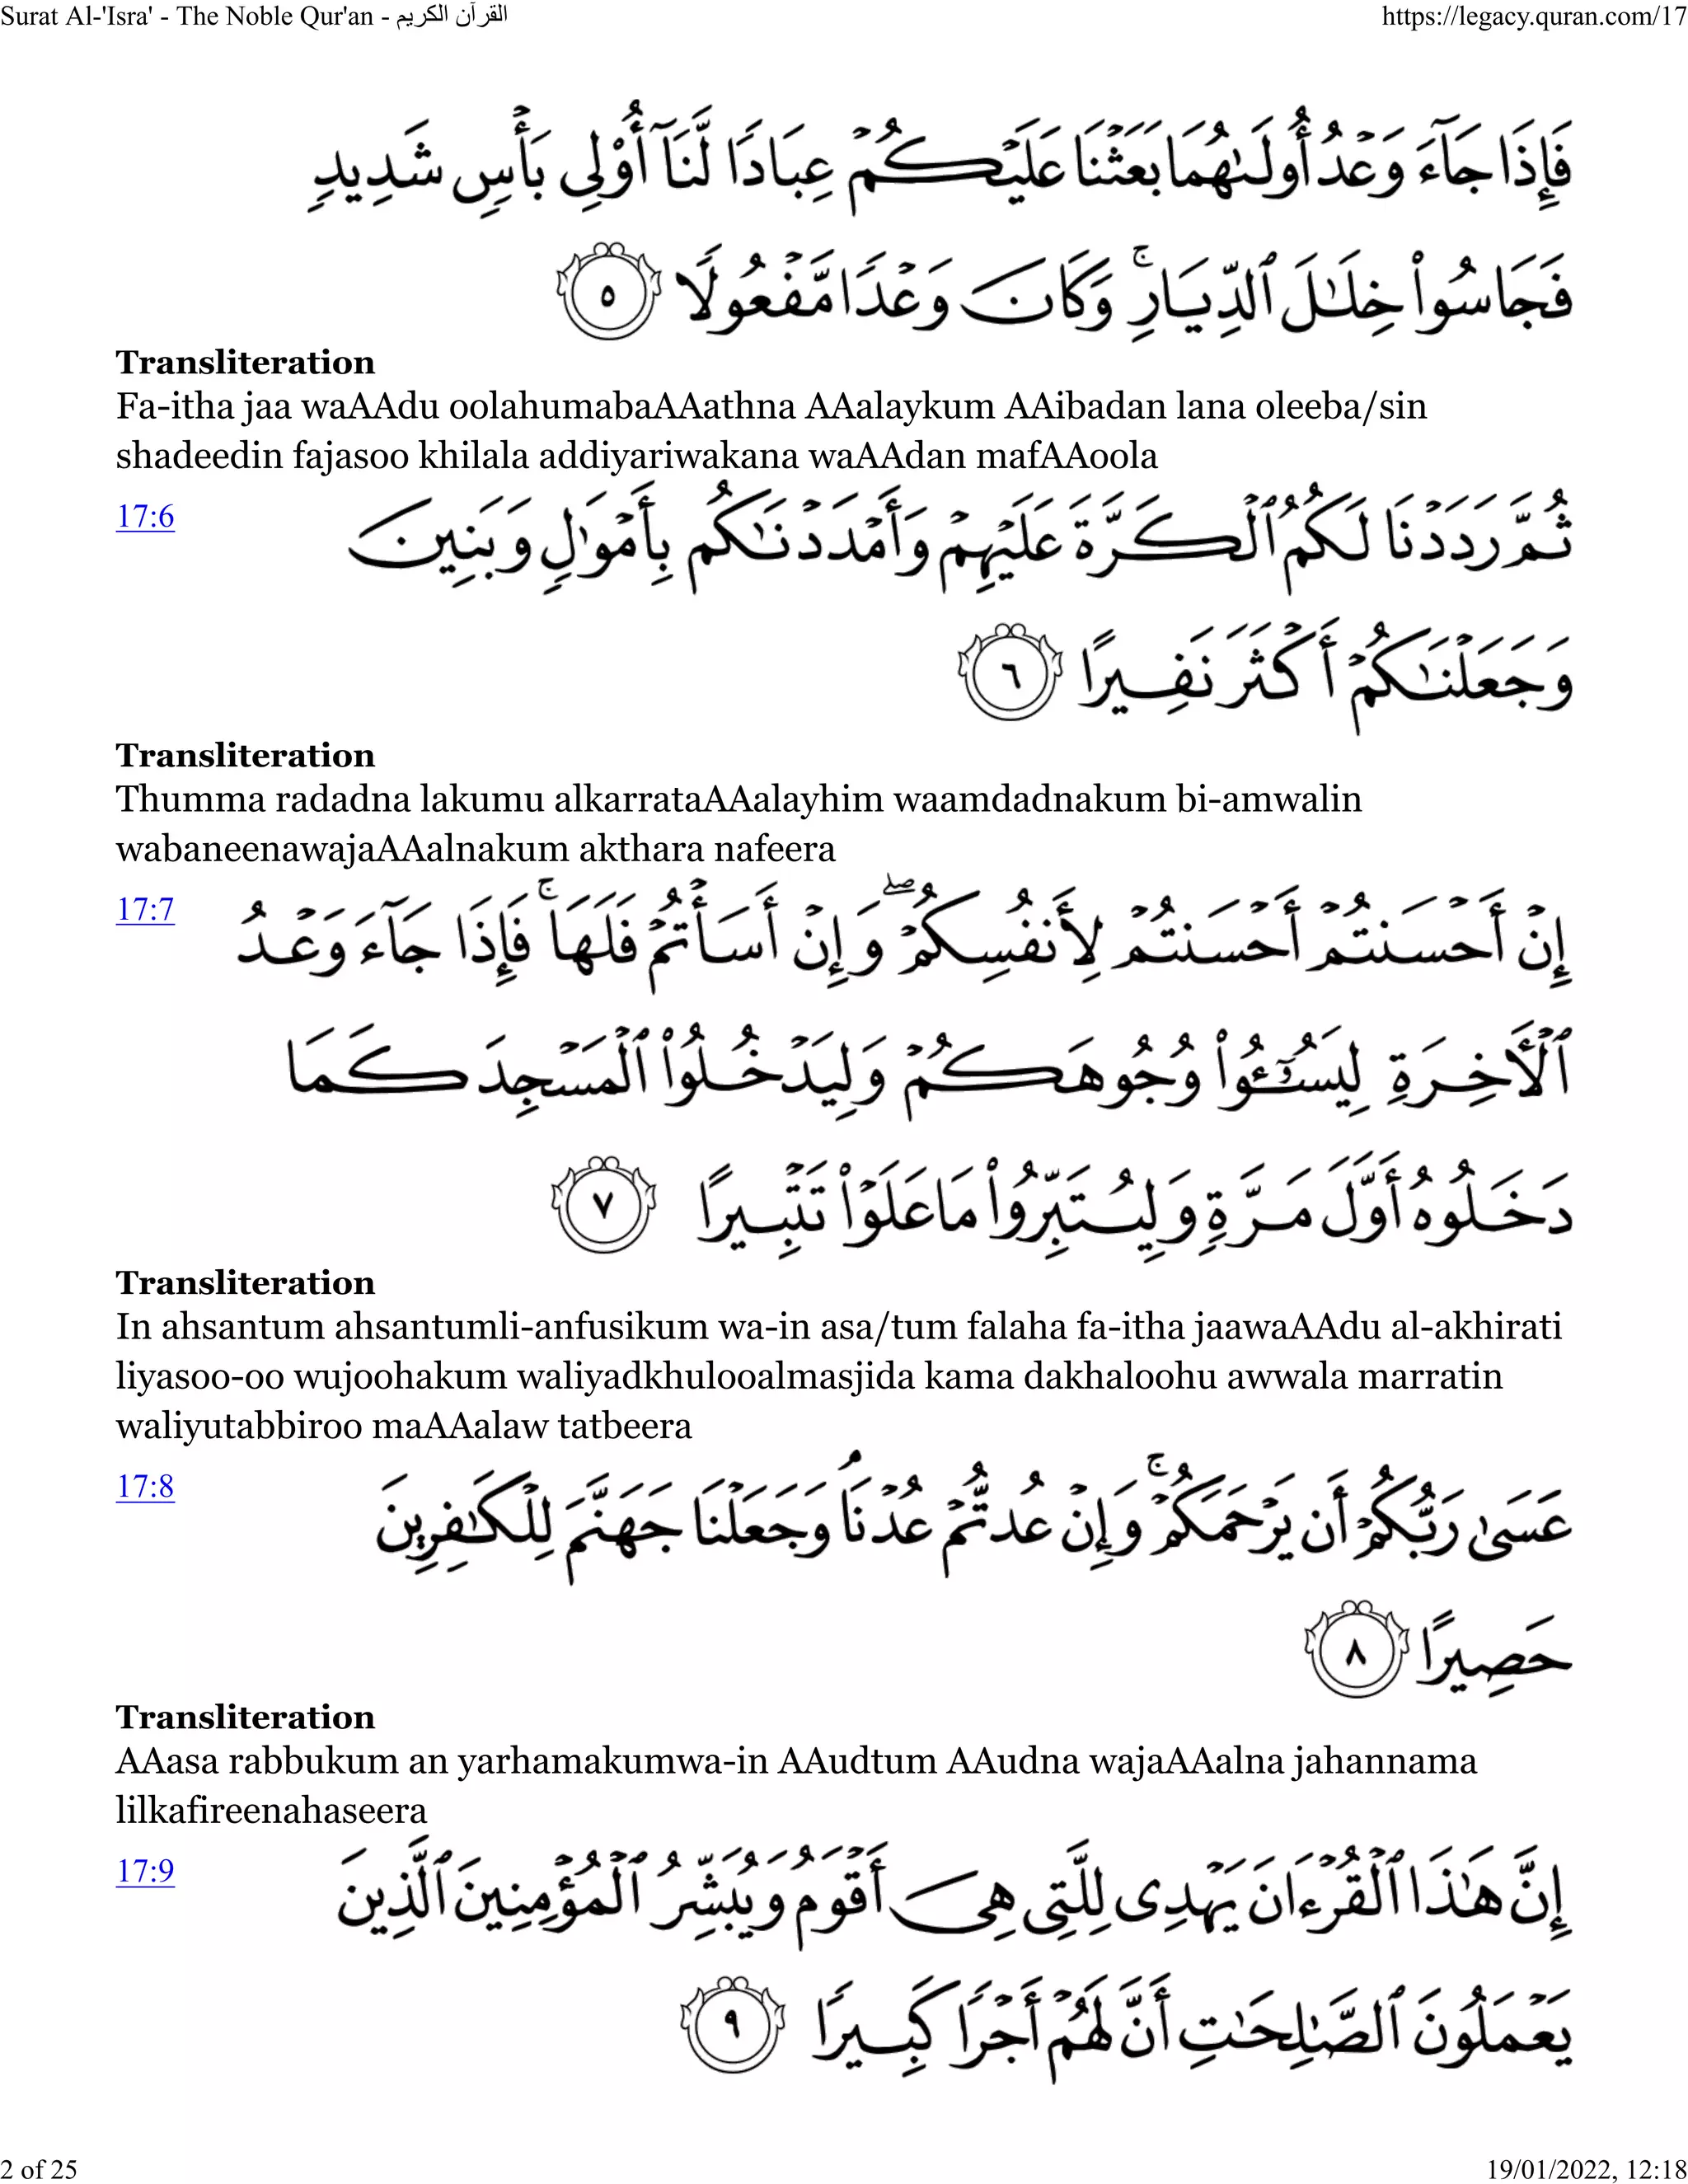 Surat Al-'Isra' - The Noble Qur'an - القرآن الكريم
https://legacy.quran.com/17
فَإِذَا جَآءَ وَعْدُ أُولَىٰهُمَا بَعَثْنَا عَلَيْكُمْ عِبَادًا لَّنَآ أُو۟لِى بَأْسٍ شَدِيدٍ
فَجَاسُوا۟ خِلَـٰلَ ٱلدِّيَارِ ۚ وَكَانَ وَعْدًا مَّفْعُولًا ٥
Transliteration
Fa-itha jaa waAAdu oolahumabaAAathna AAalaykum AAibadan lana oleeba/sin
shadeedin fajasoo khilala addiyariwakana waAAdan mafAAoola
17:6
ثُمَّ رَدَدْنَا لَكُمُ ٱلْكَرَّةَ عَلَيْهِمْ وَأَمْدَدْنَـٰكُم بِأَمْوَٰلٍ وَبَنِينَ
وَجَعَلْنَـٰكُمْ أَكْثَرَ نَفِيرًا ٦
Transliteration
Thumma radadna lakumu alkarrataAAalayhim waamdadnakum bi-amwalin
wabaneenawajaAAalnakum akthara nafeera
17:7
إِنْ أَحْسَنتُمْ أَحْسَنتُمْ لِأَنفُسِكُمْ ۖ وَإِنْ أَسَأْتُمْ فَلَهَا ۚ فَإِذَا جَآءَ وَعْدُ
ٱلْـَٔاخِرَةِ لِيَسُـۥٓـُٔوا۟ وُجُوهَكُمْ وَلِيَدْخُلُوا۟ ٱلْمَسْجِدَ كَمَا
دَخَلُوهُ أَوَّلَ مَرَّةٍ وَلِيُتَبِّرُوا۟ مَا عَلَوْا۟ تَتْبِيرًا ٧
Transliteration
In ahsantum ahsantumli-anfusikum wa-in asa/tum falaha fa-itha jaawaAAdu al-akhirati
liyasoo-oo wujoohakum waliyadkhulooalmasjida kama dakhaloohu awwala marratin
waliyutabbiroo maAAalaw tatbeera
17:8
عَسَىٰ رَبُّكُمْ أَن يَرْحَمَكُمْ ۚ وَإِنْ عُدتُّمْ عُدْنَا ۘ وَجَعَلْنَا جَهَنَّمَ لِلْكَـٰفِرِينَ
حَصِيرًا ٨
Transliteration
AAasa rabbukum an yarhamakumwa-in AAudtum AAudna wajaAAalna jahannama
lilkafireenahaseera
17:9
إِنَّ هَـٰذَا ٱلْقُرْءَانَ يَهْدِى لِلَّتِى هِىَ أَقْوَمُ وَيُبَشِّرُ ٱلْمُؤْمِنِينَ ٱلَّذِينَ
يَعْمَلُونَ ٱلصَّـٰلِحَـٰتِ أَنَّ لَهُمْ أَجْرًا كَبِيرًا ٩
2 of 25
19/01/2022, 12:18